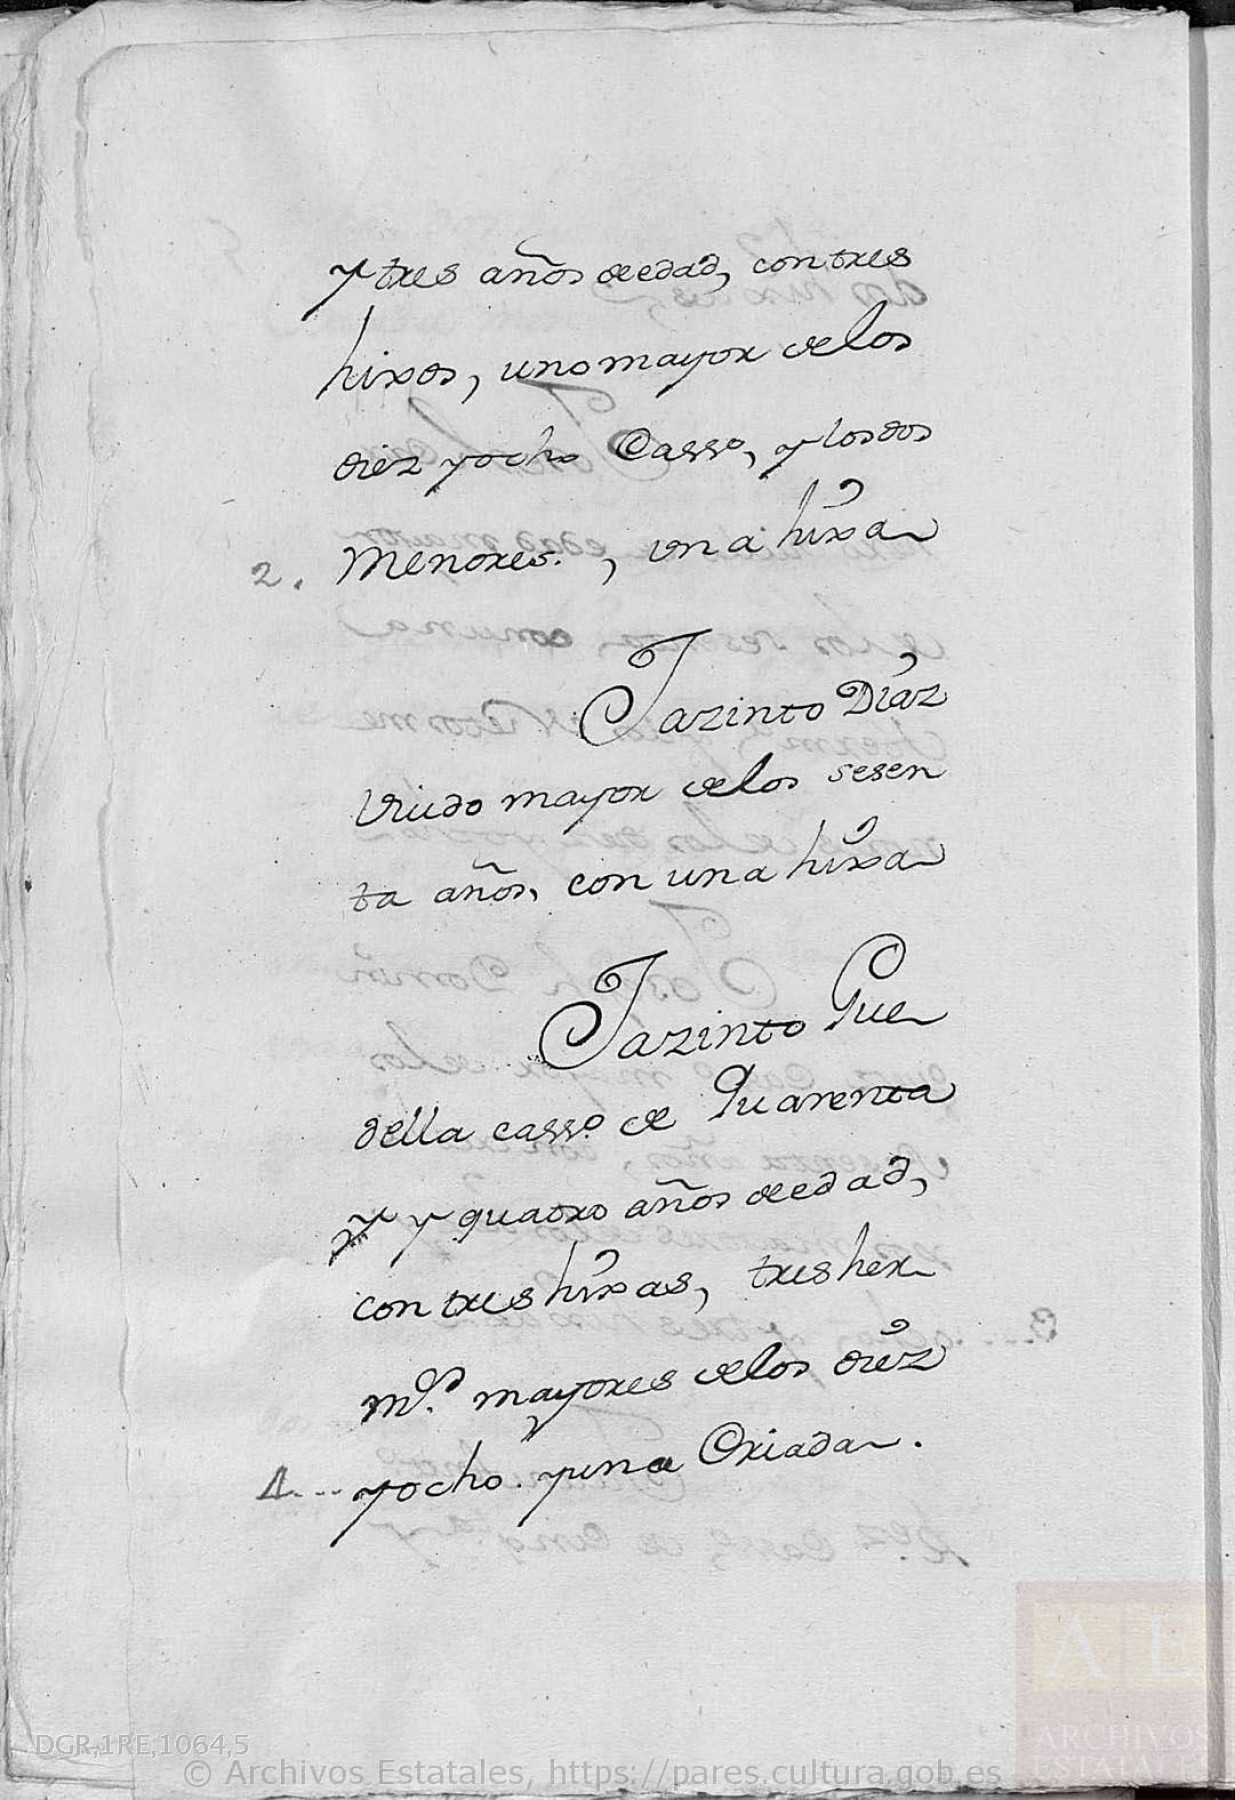 y tres años de edad, con tres
hixos, uno mayor de los
diez y ocho Casso, y los dos
2. Menores., una hixa
Jazinto Diaz
Viudo mayor de los sesen
ta años, con una hixa
Jazinto Gue
della casso. de Quarenta
y y quatro años de edad,
con tres hixas, tres her
mos. mayores de los diez
4... y ocho. y una Criada.
DGR,1RE,1064,5
© Archivos Estatales, https://pares.cultura.gob.es
AE
ARCHIVOS
ESTATALES